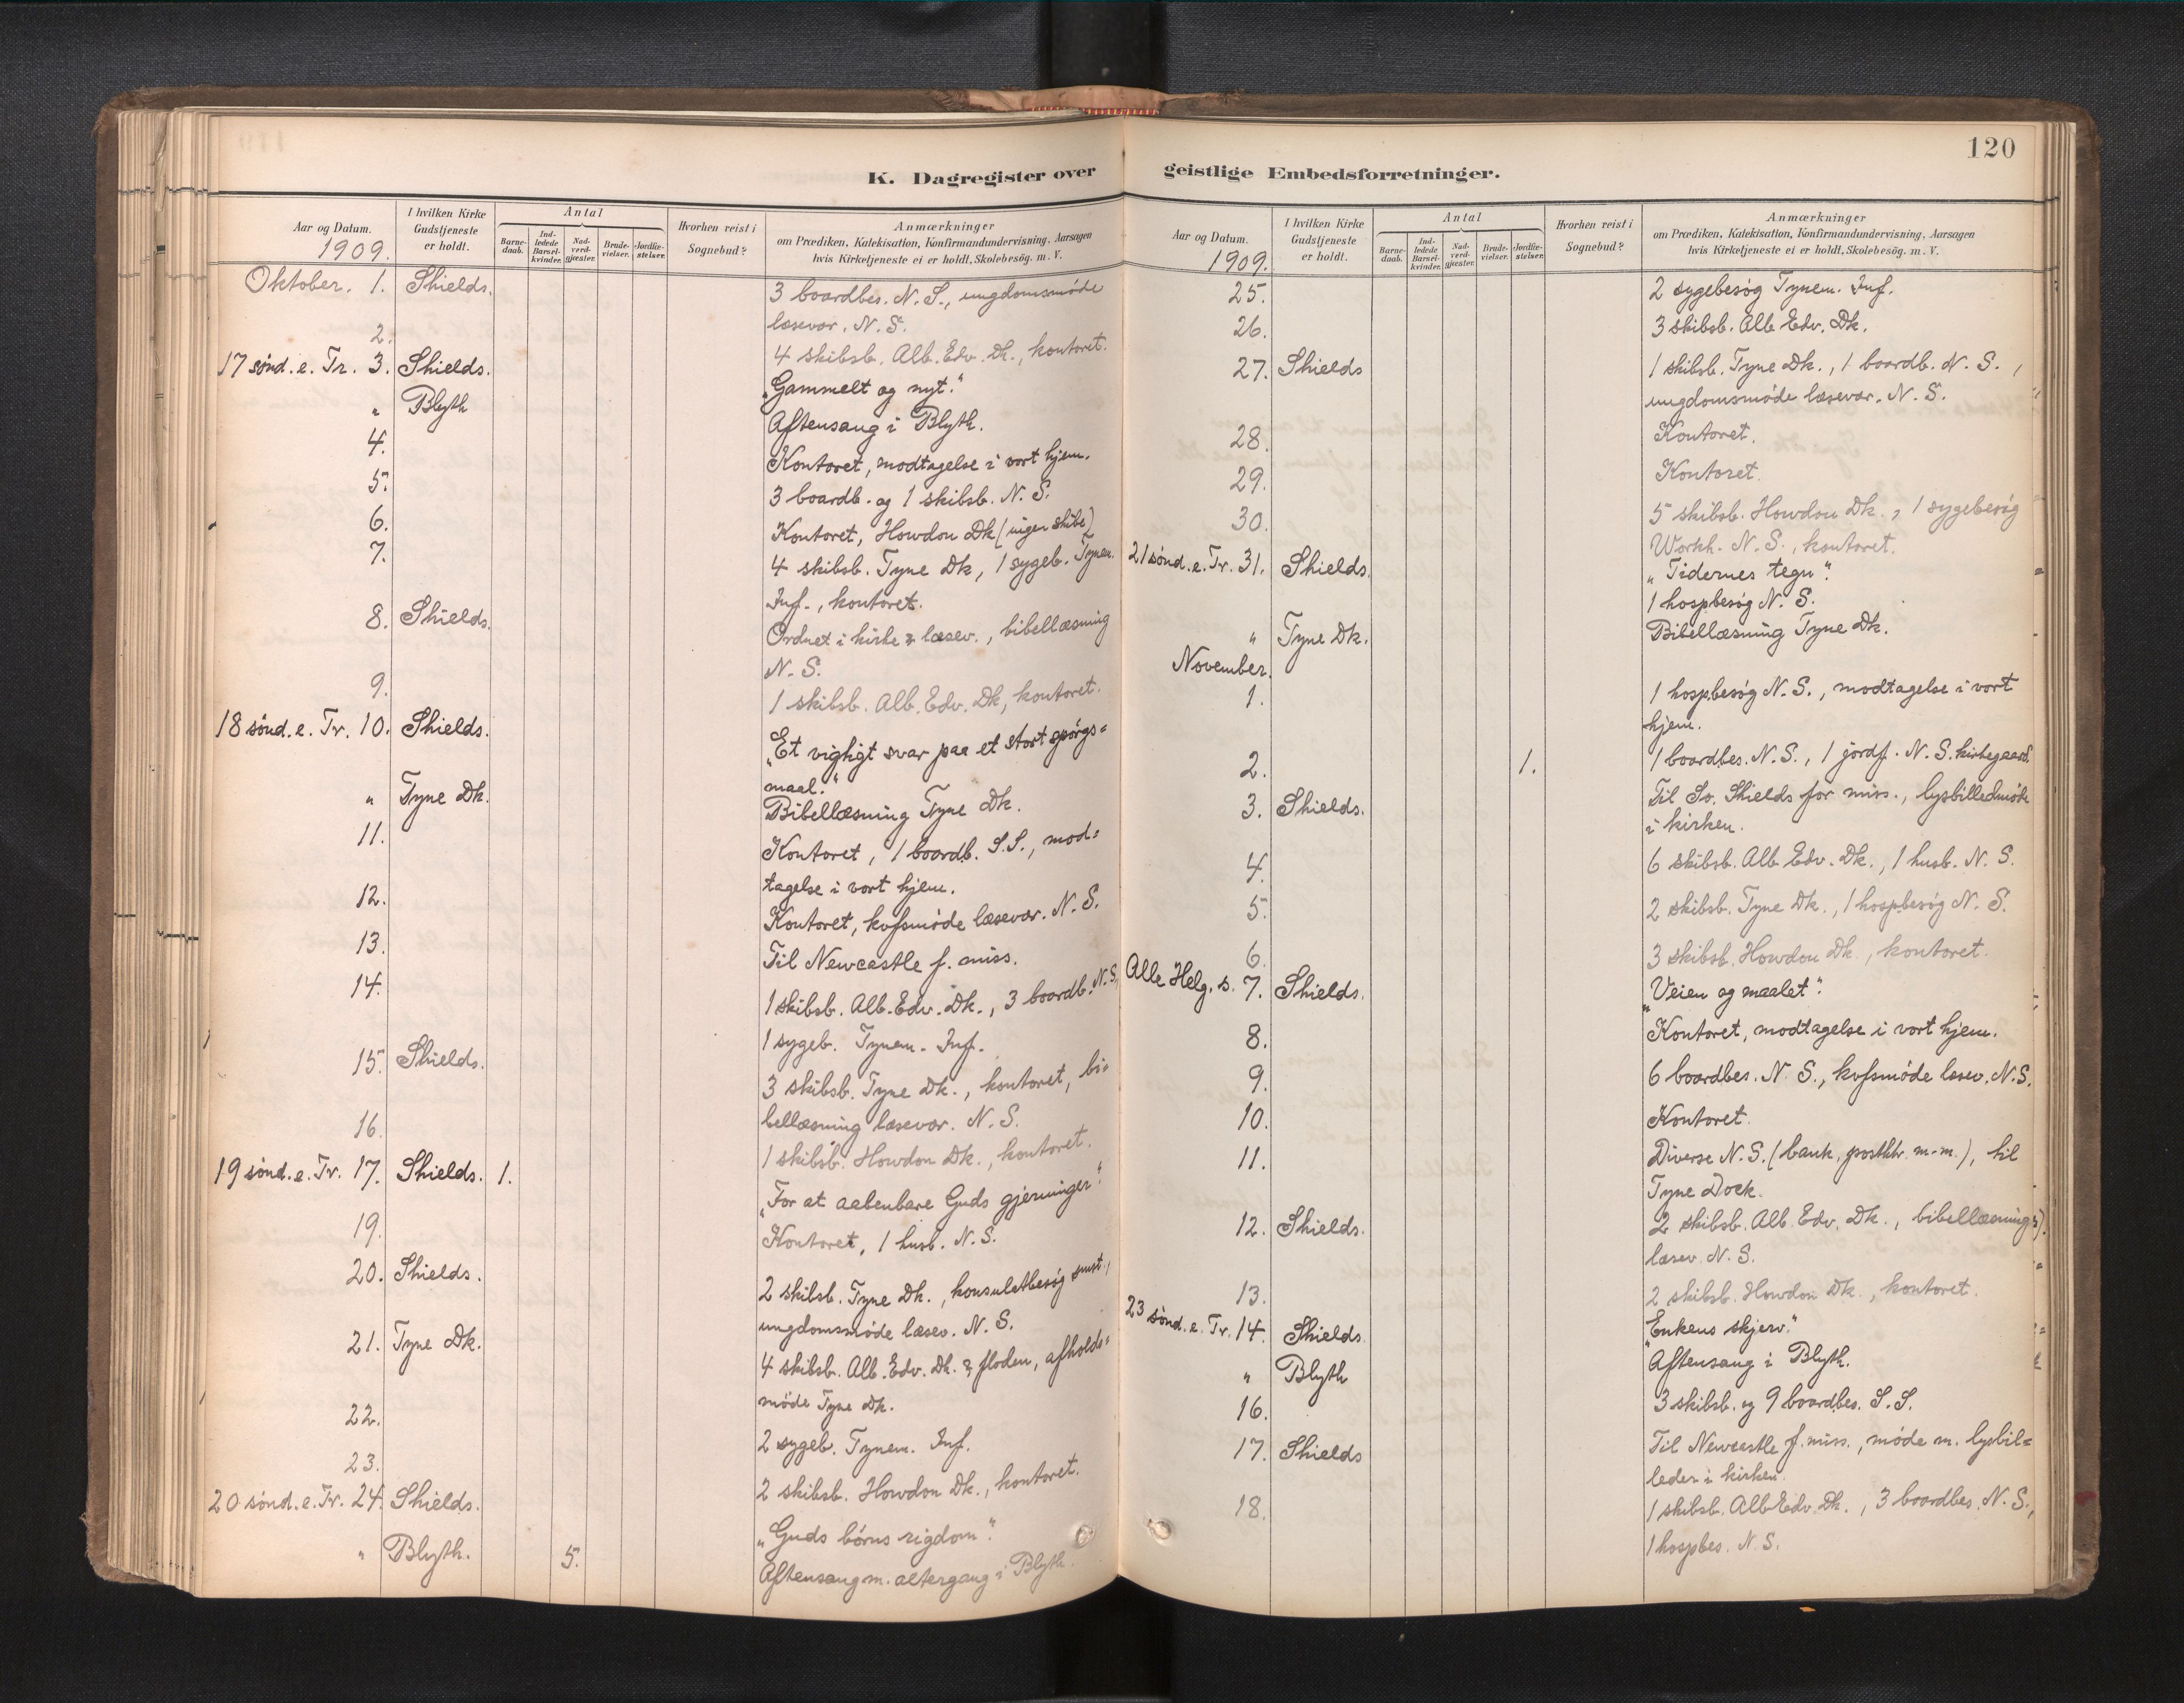 120
K. Dagregister over
Aar og Datum.
1909.
I hvilken Kirke Gudstjeneste er holdt.
Antal
Barnedaab.
Indledede Barselkvinder.
Nadverdgjæster.
Brudevielser.
Jordfæstelser.
Hvorhen reist i Sognebud?
Anmærkninger
om Prædiken, Katekisation, Konfirmandundervisning. Aarsagen
hvis Kirketjeneste ei er holdt, Skolebesøg. m. V.
Oktober. 1. Shields. 3 boardbes. N. S., ungdomsmøde
læsevær. N. S.
2. 4 skibsb. Alb. Edv. Dk., kontoret.
17 sønd. e. Tr. 3. Shields. "Gammelt og nyt."
" Blyth Aftensang i Blyth.
4. Kontoret, modtagelse i vort hjem.
5. 3 boardb. og 1 skibsb. N. S.
6. Kontoret, Howdon Dk (ingen skibe)
7. 4 skibsb. Tyne Dk, 1 sygeb. Tynem.
Inf., kontoret.
8. Shields. Ordnet i kirke & læsev., bibellæsning
N. S.
9. 1 skibsb. Alb. Edv. Dk, kontoret.
18 sønd. e. Tr. 10. Shields. "Et vigtigt svar paa et stort spørgs=
maal."
" Tyne Dk. Bibellæsning Tyne Dk.
11. Kontoret, 1 boardb. S.S., mod=
tagelse i vort hjem.
12. Kontoret, kvfsmøde læsevær. N. S.
13. Til Newcastle f. miss.
14. 1 skibsb. Alb. Edv. Dk., 3 boardb. N. S.,
1 sygeb. Tynem. Inf.
15. Shields. 3 skibsb. Tyne Dk., kontoret, bi=
bellæsning læsevær. N. S.
16. 1 skibsb. Howdon Dk., kontoret.
19 sønd. e. Tr. 17. Shields. 1. "For at aabenbare Guds gjerninger."
19. Kontoret, 1 husb. N. S.
20. Shields. 2 skibsb. Tyne Dk., konsulatbesøg
ungdomsmøde læsev. N. S.
21. Tyne Dk. 4 skibsb. Alb. Edv. Dk. & floden, afholds=
møde Tyne Dk.
22. 2 sygeb. Tynem. Inf.
23. 2 skibsb. Howdon Dk., kontoret.
20 sønd. e. Tr. 24. Shields. "Guds børns rigdom".
" Blyth. 5. Aftensang m. altergang i Blyth.
geistlige Embedsforretninger.
Aar og Datum.
1909.
I hvilken Kirke Gudstjeneste er holdt.
Antal
Barnedaab.
Indledede Barselkvinder.
Nadverdgjæster.
Brudevielser.
Jordfæstelser.
Hvorhen reist i Sognebud?
Anmærkninger
om Prædiken, Katekisation, Konfirmandundervisning. Aarsagen
hvis Kirketjeneste ei er holdt, Skolebesøg. m. V.
25. 2 sygebesøg Tynem. Inf.
26. 3 skibsb. Alb Edv. Dk.
27. Shields 1 skibsb. Tyne Dk., 1 boardb. N. S.,
ungdomsmøde læsevær. N. S.
28. Kontoret.
29. Kontoret.
30. 5 skibsb. Howdon Dk., 1 sygebesøg
Workh. N. S., kontoret.
21 sønd. e. Tr. 31. Shields. "Tidernes tegn".
1 hospbesøg N. S.
" Tyne Dk. Bibellæsning Tyne Dk.
November.
1. 1 hospbesøg N. S., modtagelse i vort
hjem.
2. 1. 1 boardbes. N. S., 1 jordf. N. S. kirkegaard.
3. Shields. Til So. Shields for miss., lysbilledmøde
i kirken.
4. 6 skibsb. Alb Edv. Dk., 1 husb. N. S.
5. 2 skibsb. Tyne Dk., 1 hospbesøg N. S.
6. 3 skibsb. Howdon Dk., kontoret.
Alle Helg. s. 7. Shields. "Veien og maalet".
8. Kontoret, modtagelse i vort hjem.
9. 6 boardbes. N. S., kvfsmøde læsev. N. S.
10. Kontoret.
11. Diverse N. S. (bank, postktr. m.m.), til
Tyne Dock.
12. Shields. 2 skibsb. Alb. Edv. Dk., bibellæsning
læsev. N. S.
13. 2 skibsb. Howdon Dk., kontoret.
23 sønd. e. Tr. 14. Shields. "Enkens skjerv."
" Blyth Aftensang i Blyth.
16. 3 skibsb. og 9 boardbes. S. S.
17. Shields Til Newcastle f. miss., møde m. lysbil=
leder i kirken.
18. 1 skibsb. Alb Edv. Dk., 3 boardbes. N. S.,
1 hospbes. N. S.